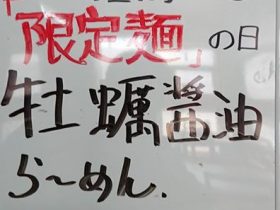 「限定麺」の日
牡蠣醤油
らーめん.